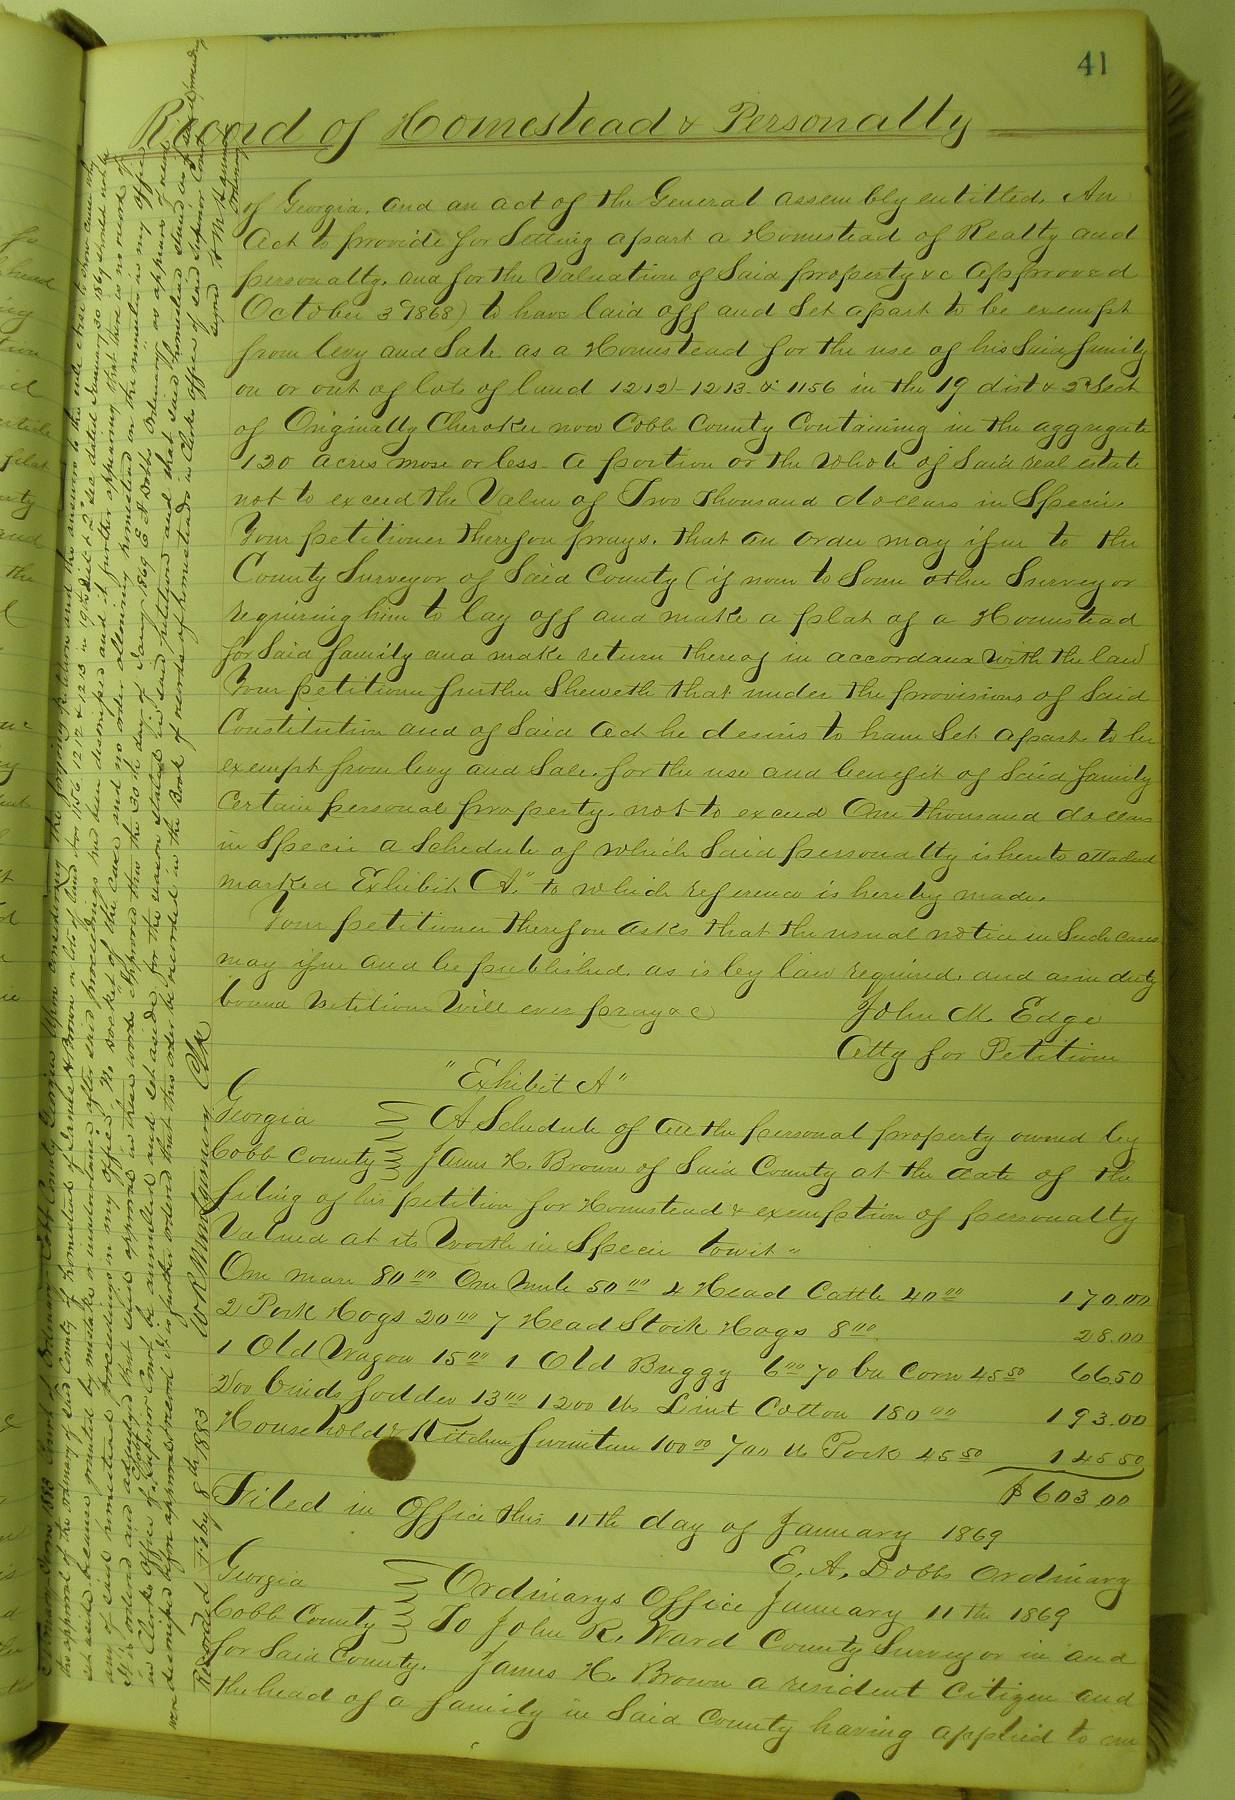 41
Record of Homestead & Personalty
of Georgia. and an act of the General assembly entitled. An
Act to provide for Setting apart a Homestead of Realty and
personalty. and for the Valuation of Said property &c Approved
October 3d 1868) to have laid off and Set apart to be exempt
from levy and Sale as a Homestead for the use of his Said family
on or out of lots of land 1212 - 1213 - & 1156 in the 19 dist & 2d Sect
of Originally Cherokee now Cobb County Containing in the aggregate
120 acres more or less - a portion or the whole of Said real estate
not to exceed the Value of Two Thousand dollars in Specie.
Your petitioner therefore prays. that an order may issue to the
County Surveyor of Said County (if none to Some other Surveyor
requiring him to lay off and make a plat of a Homestead
for Said family and make return thereof in accordance with the law
Your petitioner further Sheweth that under the provisions of Said
Constitution and of Said Act he desires to have Set apart to be
exempt from levy and Sale. for the use and benefit of Said family
Certain personal property. not to exceed One thousand dollars
in Specie a Schedule of which Said personalty is hereto attached
marked Exhibit "A." to which reference is hereby made.
Your petitioner therefore asks that the usual notice in Such cases
may issue and be published. as is by law required. and as in duty
bound Petitioner Will ever pray &c
John M. Edge
Atty for Petitioner
"Exhibit A"
Georgia A Schedule of all the personal property owned by
Cobb County James H. Brown of Said County at the date of the
filing of his petition for Homestead & exemption of personalty
Valued at its Worth in Specie towit "
One mare 80 00 One Mule 50 00 4 Head Cattle 40 00 170.00
2 Pork Hogs 20 00 7 Head Stock Hogs 8 00 28.00
1 Old Wagon 15 00 1 Old Buggy 6 00 70 bu Corn 45 50 66.50
200 binds fodder 13 00 1200 lbs Lint Cotton 180 00 193.00
Household & Kitchen furniture 100 00 700 lbs Pork 45 50 145.50
$603.00
Filed in Office this 11th day of January 1869
E. A. Dobbs Ordinary
Georgia Ordinarys Office January 11th 1869
Cobb County To John R. Ward County Surveyor in and
for Said County. James H. Brown a resident Citizen and
the head of a family in Said County having applied to me
February Term 1883 Court of Ordinary Cobb County Georgia Upon considering the foregoing petition and the answer to the rule to show cause why
the approval of the Ordinary of said County of homestead of James H Brown on lots of land Nos 1156 1212 & 1213 in 19th Dist & 2d Sec dated January 30 1869 should not be
set aside because granted by mistake or misunderstand after said proceedings had been dismissed and it further appearing that there is no record of
any of said homestead proceedings in my office, No docket of the case and no order allowing homestead on the minutes in my office
It is ordered and adjudged that said approval in these words Approved this the 30th day of Jany 1869 E A Dobbs Ordinary as appears of record
in Clerks Office of Superior Court be annulled and set aside for the reason stated in said petition and that said homestead stand as if
were dismissed before approval & record It is further ordered that this order be recorded in the Book of records of homesteads in Clerks Office of said Superior Court
Recorded Feby 8th 1883 W R Montgomery Clk